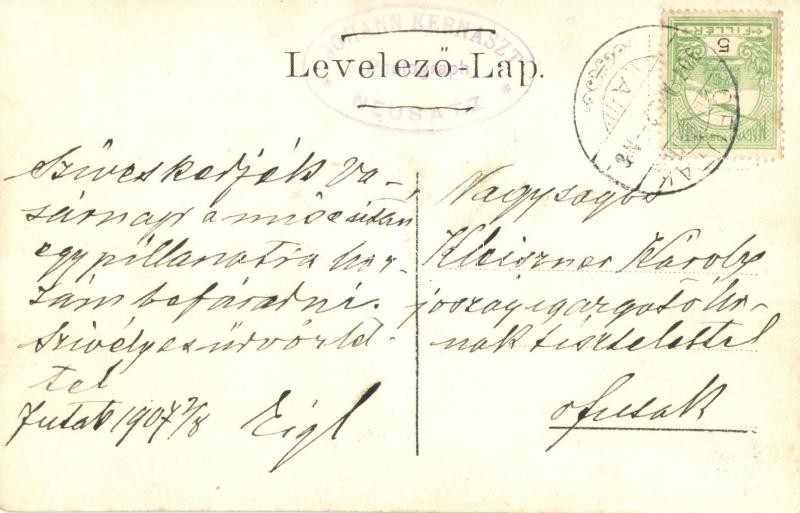 JOHANN KERNASZT
NEUSATZ
Levelező-Lap.
5
FILLÉR
Sziveskedjék Va-
sárnap a mise után
egy pillanatra hoz-
zám befáradni.
Szivélyes üdvözlet-
tel
Futak 1907 7/8 Eigl
Nagyságos
Kleiszner Károly
jószágigazgató úr-
nak tisztelettel
Ófutak